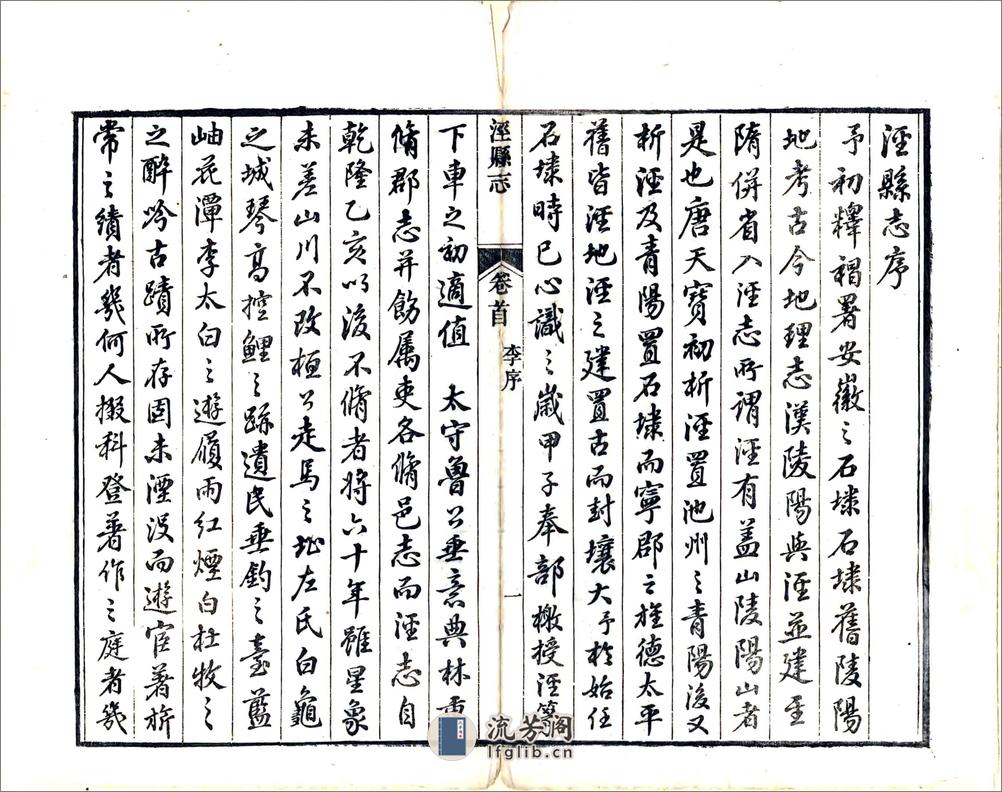 涇縣志序
予初釋褐署安徽之石埭石埭舊陵陽
地考古今地理志漢陵陽與涇並建至
隋併省入涇志所謂涇有蓋山陵陽山者
是也唐天寶初析涇置池州之青陽後又
析涇及青陽置石埭而寧郡之旌德太平
舊皆涇地涇之建置古而封壤大予於始任
石埭時已心識之歲甲子奉部檄授涇篆
涇縣志
卷首
李序
一
下車之初適值 太守魯公垂意典林重
脩郡志并飭属吏各脩邑志而涇志自
乾隆乙亥以後不脩者將六十年雖星象
未差山川不改桓公走馬之址左氏白龜
之城琴高控鯉之跡遺民垂釣之臺藍
岫花潭李太白之遊屐雨紅煙白杜牧之
之醉吟古蹟所存固未湮没而遊宦著旂
常之績者幾何人掇科登著作之庭者幾
流芳阁
lfglib.cn